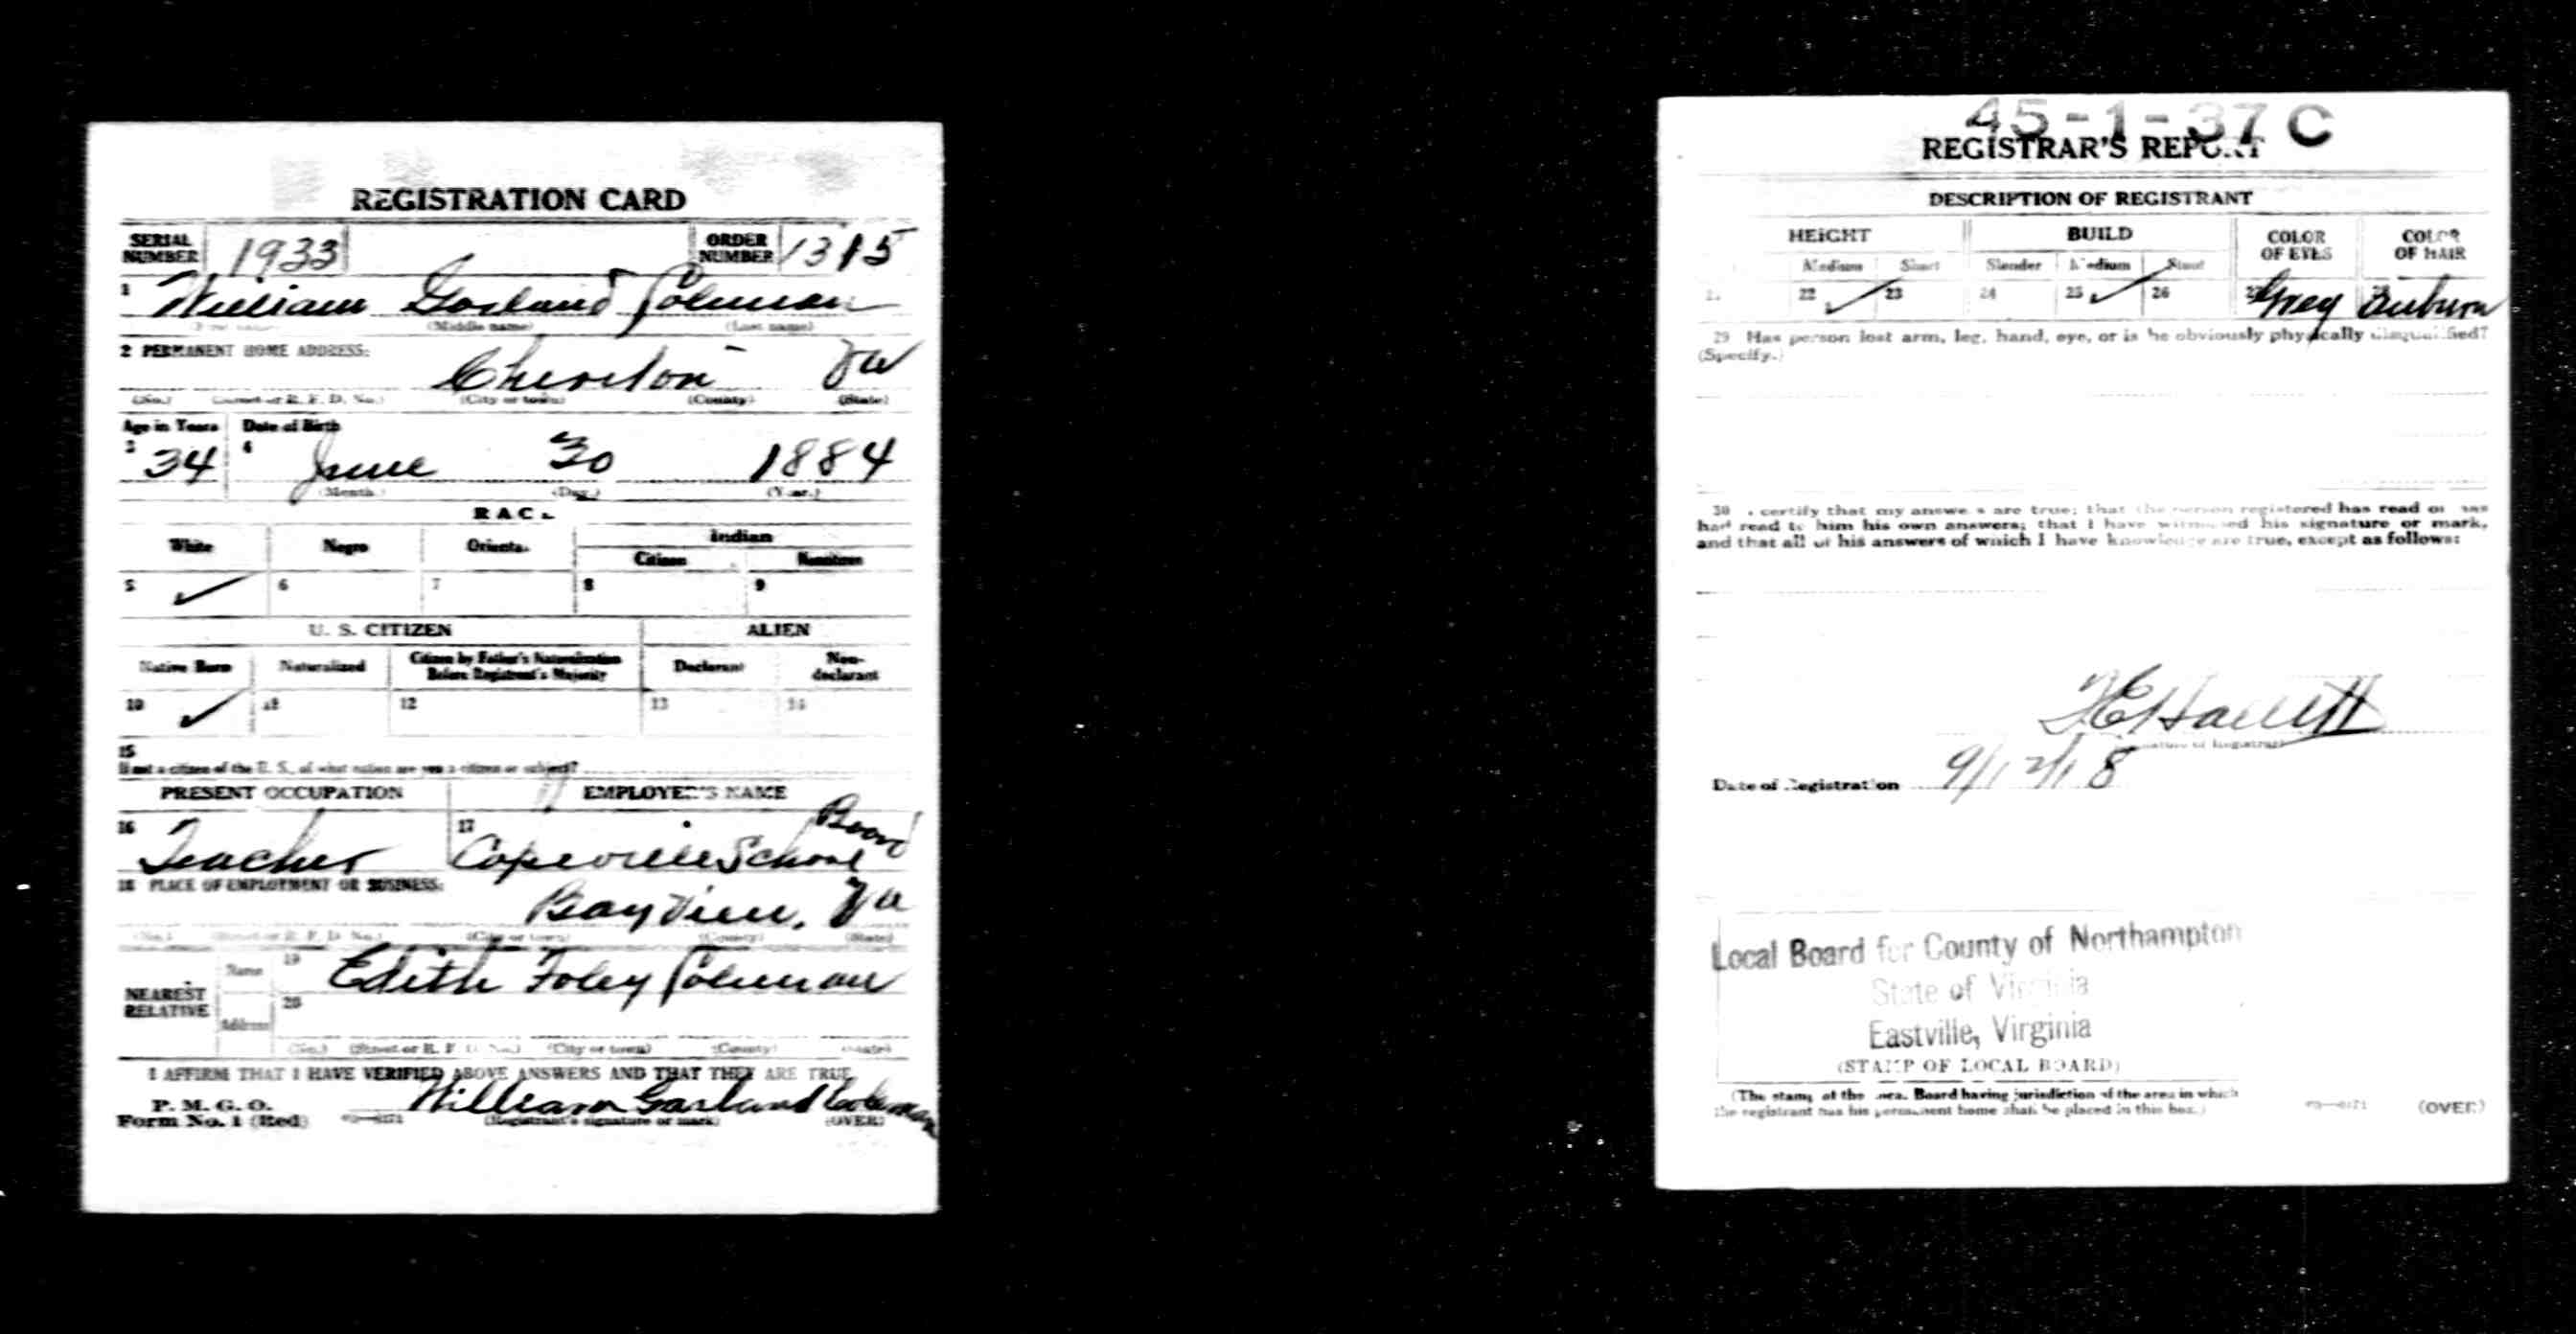 REGISTRATION CARD
SERIAL NUMBER 1933 ORDER NUMBER 1315
1 William Garland Coleman
(Middle name) (Last name)
2 PERMANENT HOME ADDRESS:
Cheriton Va
(No.) (Street or R. F. D. No.) (City or town) (County) (State)
Age in Years Date of Birth
3 34 4 June 30 1884
(Month.) (Day.) (Year.)
RACE
White Negro Oriental Indian
Citizen Noncitizen
5 ✓ 6 7 8 9
U. S. CITIZEN ALIEN
Native Born Naturalized Citizen by Father's Naturalization Before Registrant's Majority Declarant Non-declarant
10 ✓ 11 12 13 14
15
If not a citizen of the U. S., of what nation are you a citizen or subject?
PRESENT OCCUPATION EMPLOYER'S NAME
16 Teacher 17 Capeville School Board
18 PLACE OF EMPLOYMENT OR BUSINESS:
Bayview, Va
(No.) (Street or R. F. D. No.) (City or town) (County) (State)
NEAREST RELATIVE Name 19 Edith Foley Coleman
Address 20
(No.) (Street or R. F. D. No.) (City or town) (County) (State)
I AFFIRM THAT I HAVE VERIFIED ABOVE ANSWERS AND THAT THEY ARE TRUE
P. M. G. O.
Form No. 1 (Red) William Garland Coleman
(Registrant's signature or mark) (OVER)
45-1-37 C
REGISTRAR'S REPORT
DESCRIPTION OF REGISTRANT
HEIGHT BUILD COLOR OF EYES COLOR OF HAIR
Medium Short Slender Medium Stout
21 22 ✓ 23 24 25 ✓ 26 27 Grey 28 Auburn
29 Has person lost arm, leg, hand, eye, or is he obviously physically disqualified?
(Specify.)
30 I certify that my answers are true; that the person registered has read or has
had read to him his own answers; that I have witnessed his signature or mark,
and that all of his answers of which I have knowledge are true, except as follows:
Hallett
(Signature of Registrar)
Date of Registration 9/12/18
Local Board for County of Northampton
State of Virginia
Eastville, Virginia
(STAMP OF LOCAL BOARD)
(The stamp of the Local Board having jurisdiction of the area in which
the registrant has his permanent home shall be placed in this box.)
(OVER)